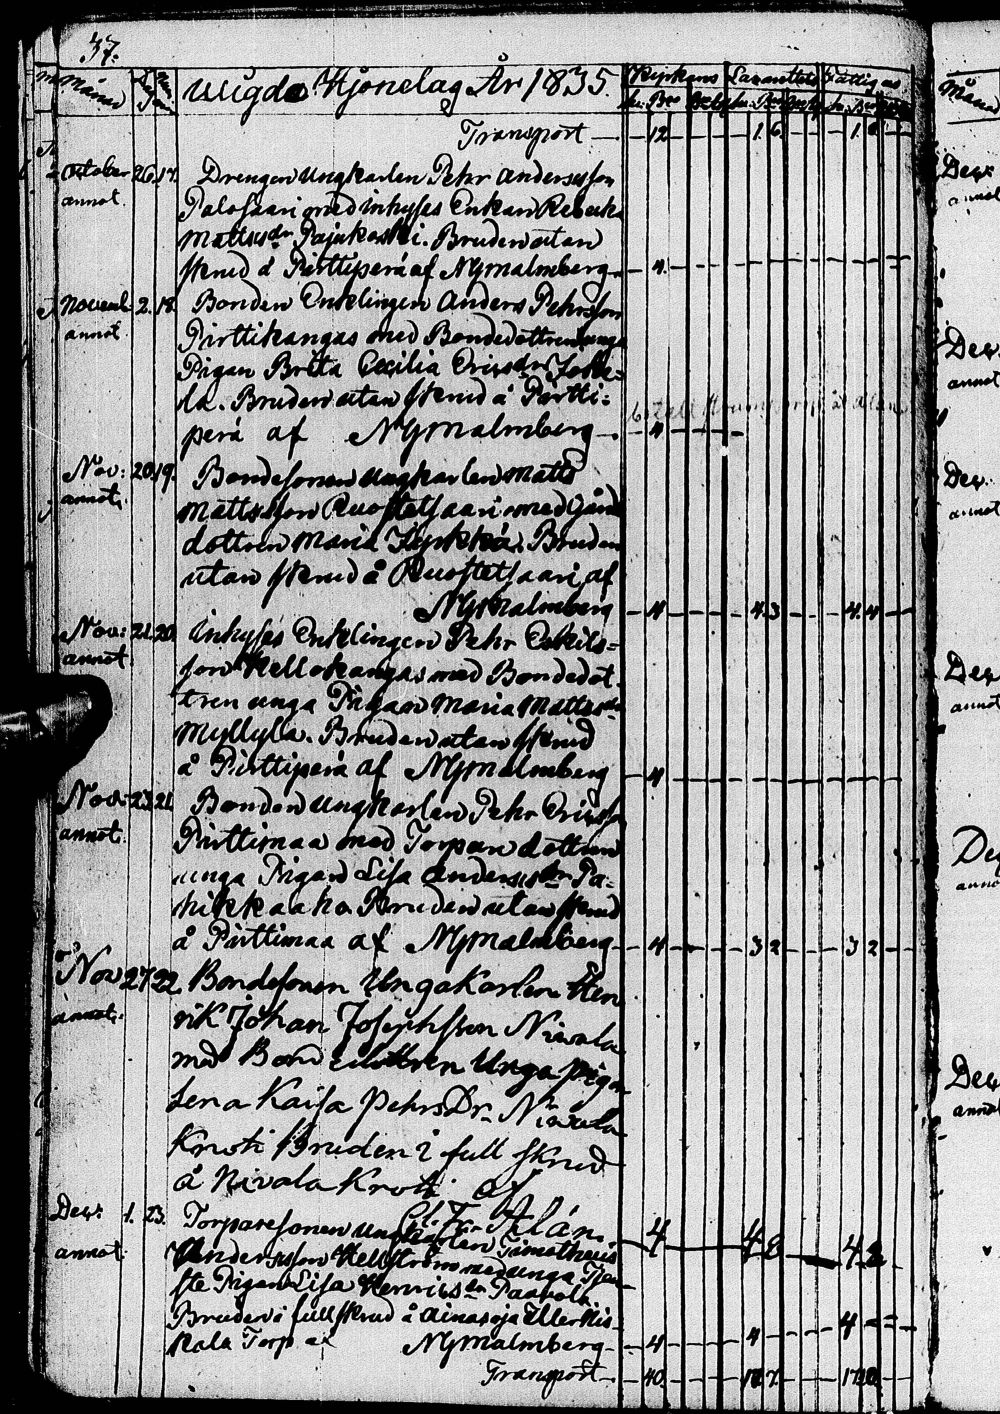 37.
Månad
Wigde Hjonelag År 1835.
Kyrkans Lazarettets Fattigas
Transport 12 1 6 1 8
October 26. 17. Drengen Ungkarlen Pehr Andersson
annot. Palosaari med inhyses Enkan Rebecka
Mattsdr Pajukoski. Bruden utan
skrud å Pirttiperä af Nymalmberg 4.
Novemb. 2. 18. Bonden Enklingen Anders Pehrsson
annot Pirttikangas med Bondedottren unga
Pigan Britta Cecilia Ericsdr Jokε=
la. Bruden utan skrud å Pirtti=
perä af Nymalmberg 4
Nov: 20. 19. Bondesonen Ungkarlen Matts
annot. Mattsson Ruostetsaari med Gårds
dottren Maria Kyrkkä. Bruden
utan skrud å Ruostetsaari af
Nymalmberg 4 4.3 4.4
Nov: 21. 20. Inhyses Enklingen Pehr Eskils=
annot son Kellokangas med Bondedot
tren unga Pigan Maria Mattsdr
Myllylä. Bruden utan skrud
å Pirttiperä af Nymalmberg 4
Nov: 23. 21. Bonden Ungkarlen Pehr Ericsson
annot. Pirttimaa med Torparedottren
unga Pigan Lisa Andersdr Pa=
hikkaaho Bruden utan skrud
å Pirttimaa af Nymalmberg 4 32 32
Nov 27 22 Bondesonen Ungakarlen Hen
annot. rik Johan Josephsson Niwala
med Bondedottren Unga pigan
Lena Kaisa PehrsDr Niwala
Kroti Bruden i full skrud
å Nivala Kroti af
Cl. Fr. Alán. 4 48 48
Decr: 1. 23. Torparesonen Ungkarlen Timotheus
annot. Andersson Hellström med unga Tjen
ste Pigan Lisa Henricsdr Paavola
Bruden i full skrud å Ainasoja Eller Nis=
kala Torp af Nymalmberg 4 4 4
Transport 40.
Månad
Decr
annot
Decr
annot
Decr.
annot
Decr
annot
Decr
annot